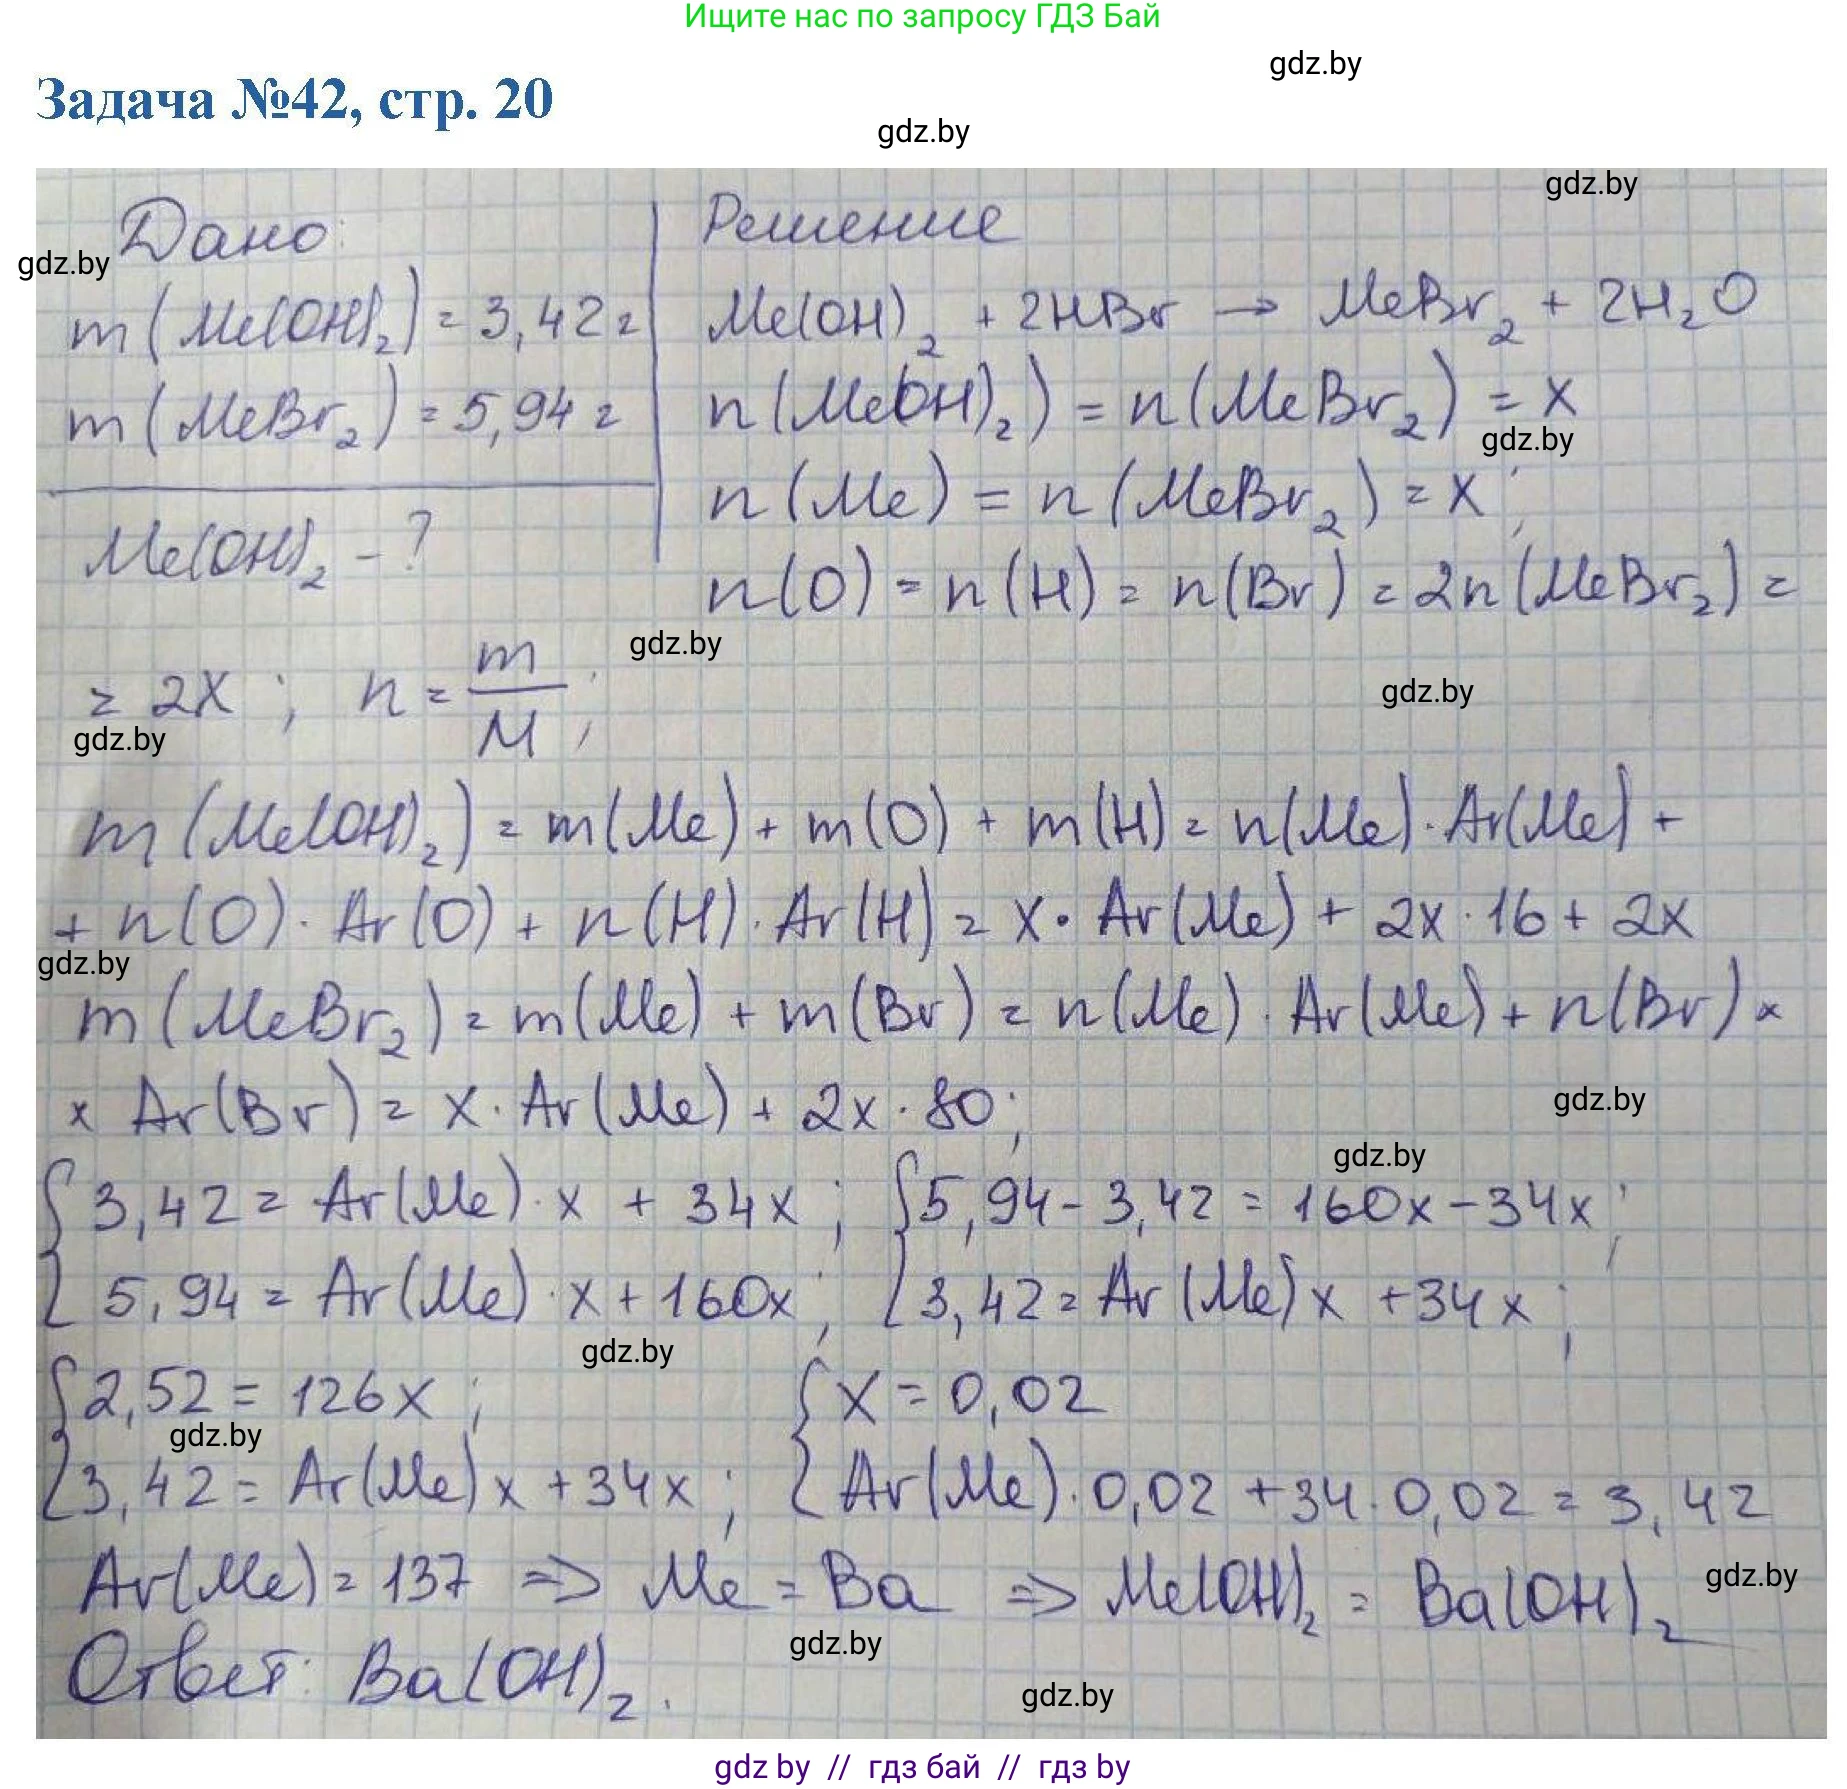 Ищите нас по запросу ГДЗ Бай
gdz.by
Задача №42, стр. 20
gdz.by
gdz.by
Дано:
Решение
gdz.by
m(Me(OH)₂) = 3,42 г
Me(OH)₂ + 2HBr → MeBr₂ + 2H₂O
m(MeBr₂) = 5,94 г
n(Me(OH)₂) = n(MeBr₂) = x
gdz.by
n(Me) = n(MeBr₂) = x;
Me(OH)₂ - ?
n(O) = n(H) = n(Br) = 2n(MeBr₂) =
gdz.by
= 2x; n = m/M;
gdz.by
gdz.by
m(Me(OH)₂) = m(Me) + m(O) + m(H) = n(Me)·Ar(Me) +
+ n(O)·Ar(O) + n(H)·Ar(H) = x·Ar(Me) + 2x·16 + 2x
gdz.by
m(MeBr₂) = m(Me) + m(Br) = n(Me)·Ar(Me) + n(Br) ×
× Ar(Br) = x·Ar(Me) + 2x·80;
gdz.by
gdz.by
{3,42 = Ar(Me)·x + 34x; {5,94 - 3,42 = 160x - 34x;
5,94 = Ar(Me)·x + 160x; 3,42 = Ar(Me)x + 34x;
gdz.by
{2,52 = 126x; {x = 0,02
gdz.by
3,42 = Ar(Me)x + 34x; Ar(Me)·0,02 + 34·0,02 = 3,42
Ar(Me) = 137 => Me = Ba => Me(OH)₂ = Ba(OH)₂
gdz.by
gdz.by
Ответ: Ba(OH)₂.
gdz.by
gdz by // гдз бай // гдз by